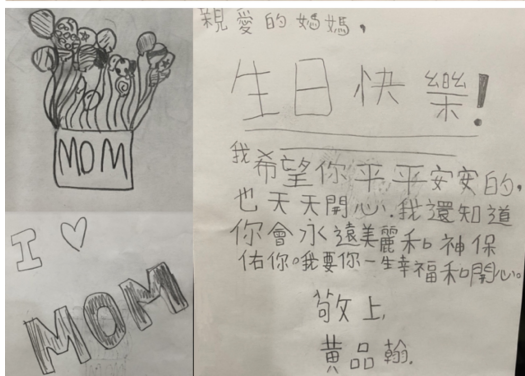 MOM
I ♡
MOM
親愛的媽媽，
生日快樂！
我希望你平平安安的，
也天天開心.我還知道
你會永遠美麗和神保
佑你。我要你一生幸福和開心。
敬上，
黃品翰.